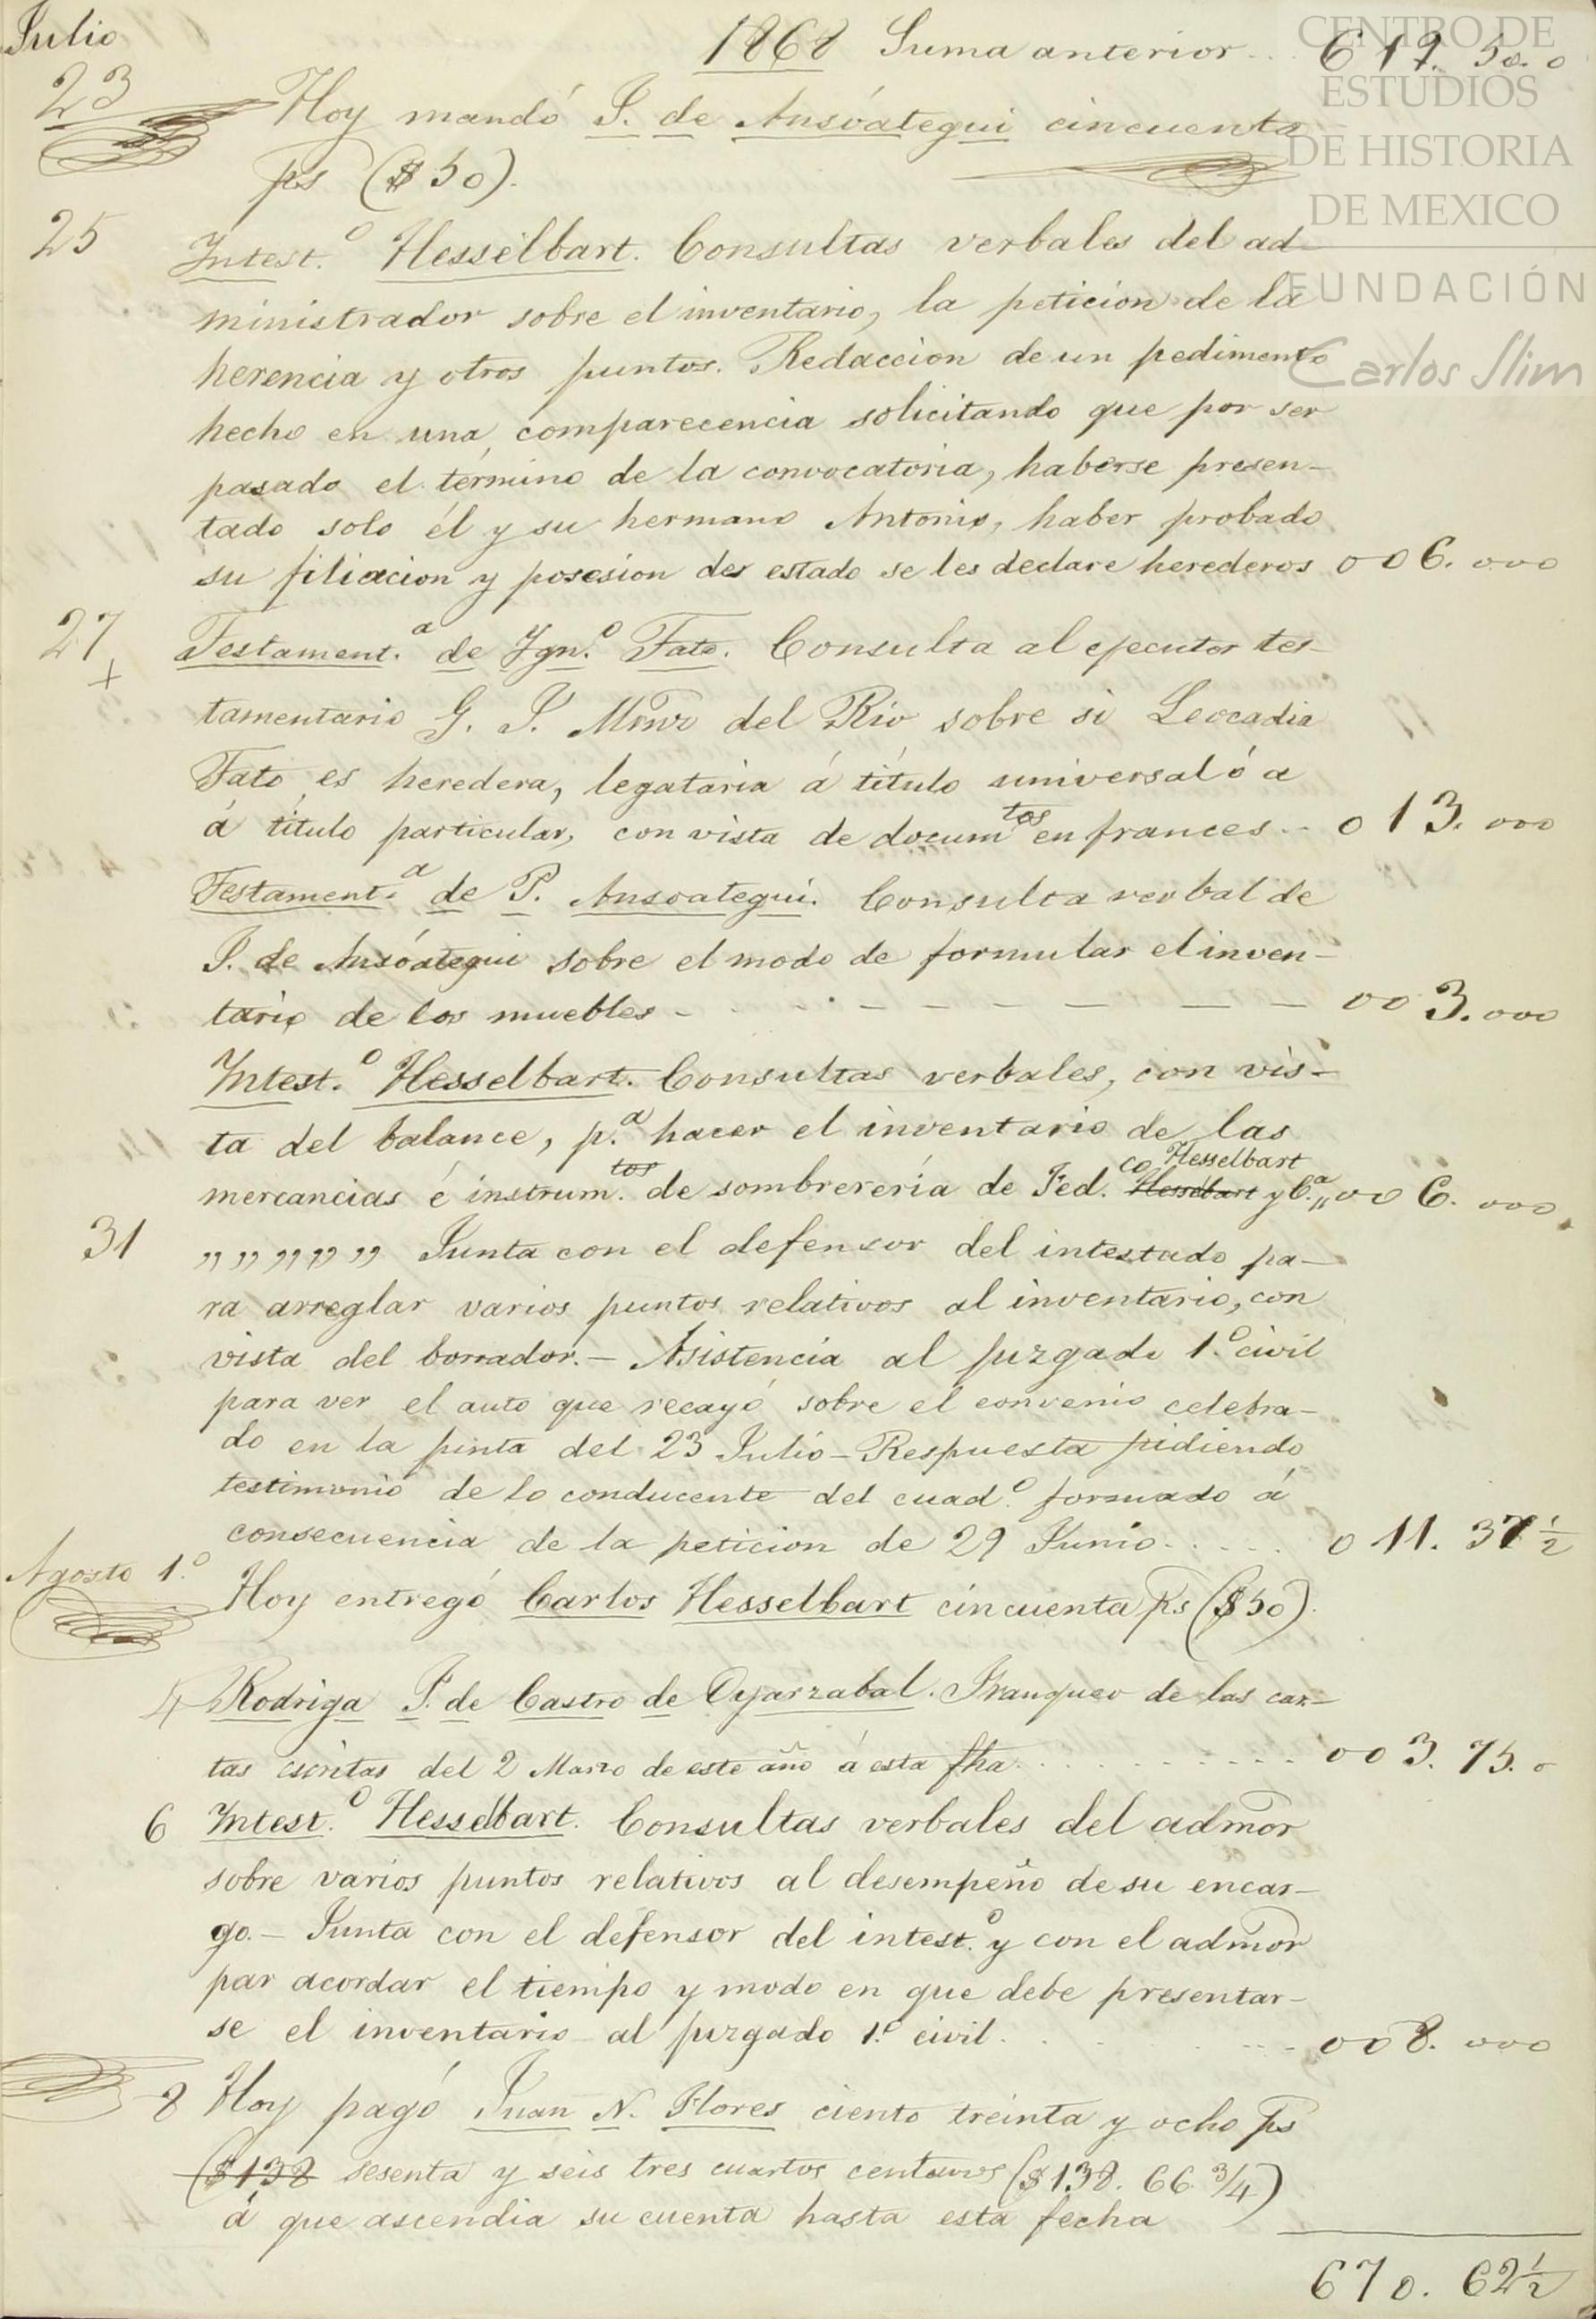 Julio 1868 Suma anterior.. 619. 50. 0
23 Hoy mandó J. de Ansóategui cincuenta
ps ($ 50).
25 Intest.º Hesselbart. Consultas verbales del ad-
ministrador sobre el inventario, la peticion de la
herencia y otros puntos. Redaccion de un pedimento
hecho en una comparecencia solicitando que por ser
pasado el término de la convocatoria, haberse presen-
tado solo él y su hermano Antonio, haber probado
su filiacion y posesion del estado se les declare herederos 006. 000
27 Testament.ª de Ygn.º Fato. Consulta al ejecutor tes-
+
tamentario G. J. del Rio sobre si Leocadia
Fato es heredera, legataria á título universal ó a
á título particular, con vista de documtos en frances.. 013. 000
Testament.ª de P. Ansoategui. Consulta verbal de
J. de Ansóategui sobre el modo de formular el inven-
tario de los muebles - - - - - - - - - 003. 000
Intest.º Hesselbart. Consultas verbales, con vis-
ta del balance, p.ª hacer el inventario de las
mercancias é instrum.tos de sombrerería de Fed.co Hesselbart Hesselbart y C.ª,, 006. 000
31 ,, ,, ,, ,, ,, Junta con el defensor del intestado pa-
ra arreglar varios puntos relativos al inventario, con
vista del borrador. - Asistencia al juzgado 1.º civil
para ver el auto que recayó sobre el convenio celebra-
do en la junta del 23 Julio - Respuesta pidiendo
testimonio de lo conducente del cuad.º formado á
consecuencia de la peticion de 29 Junio..... 011. 37 1/2
Agosto 1.º Hoy entregó Carlos Hesselbart cincuenta ps ($ 50).
4 Rodriga P. de Castro de Oyarzabal. Franqueo de las car-
tas escritas del 2 Marzo de este año á esta fha........... 003. 75. 0
6 Intest.º Hesselbart. Consultas verbales del admor
sobre varios puntos relativos al desempeño de su encar-
go. - Junta con el defensor del intest.º y con el admor
par acordar el tiempo y modo en que debe presentar-
se el inventario al juzgado 1.º civil...... 008. 000
8 Hoy pagó Juan N. Flores ciento treinta y ocho ps
($ 138 sesenta y seis tres cuartos centavos ($ 138. 66 3/4)
á que ascendia su cuenta hasta esta fecha
670. 62 1/2
CENTRO DE
ESTUDIOS
DE HISTORIA
DE MEXICO
FUNDACIÓN
Carlos Slim